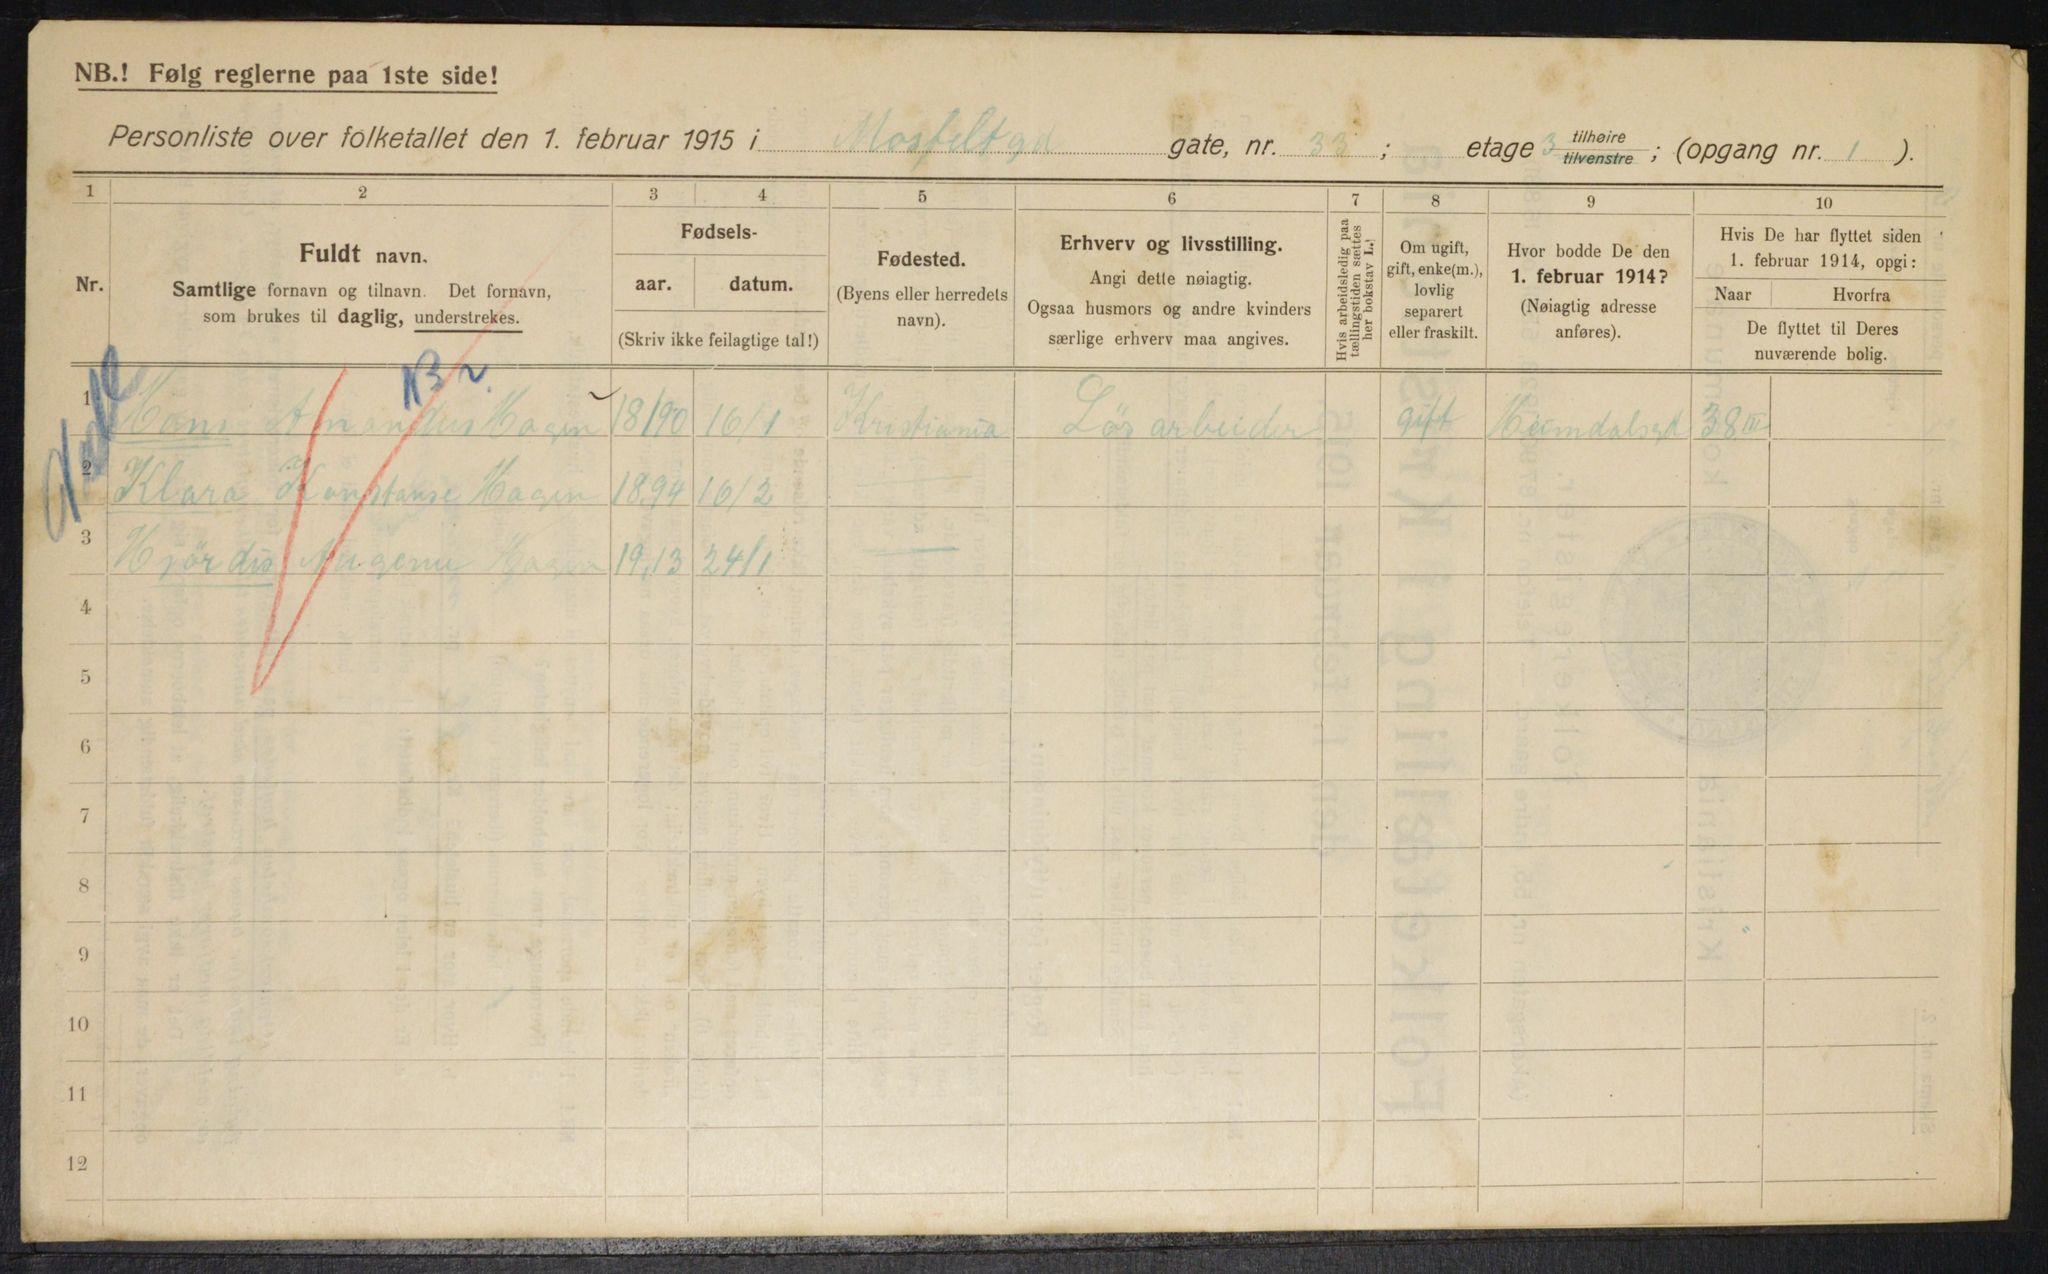 NB.! Følg reglerne paa 1ste side!
Personliste over folketallet den 1. februar 1915 i Mosfeltgd gate, nr. 33; etage 3 tilhøire / tilvenstre; (opgang nr. 1).
1 2 3 4 5 6 7 8 9 10
Nr.
Fuldt navn.
Samtlige fornavn og tilnavn. Det fornavn,
som brukes til daglig, understrekes.
Fødsels-
aar. datum.
(Skriv ikke feilagtige tal!)
Fødested.
(Byens eller herredets
navn).
Erhverv og livsstilling.
Angi dette nøiagtig.
Ogsaa husmors og andre kvinders
særlige erhverv maa angives.
Hvis arbeidsledig paa
tællingstiden sættes
her bokstav L.!
Om ugift,
gift, enke(m.),
lovlig
separert
eller fraskilt.
Hvor bodde De den
1. februar 1914?
(Nøiagtig adresse
anføres).
Hvis De har flyttet siden
1. februar 1914, opgi:
Naar Hvorfra
De flyttet til Deres
nuværende bolig.
1 Hans Amandus Hagen 18/90 16/1 Kristiania Lös arbeider gift Heimdalsgt 38 III
2 Klara Konstanse Hagen 18,94 16/2
3 Hjördis Hagen 19,13 24/1
4
5
6
7
8
9
10
11
12